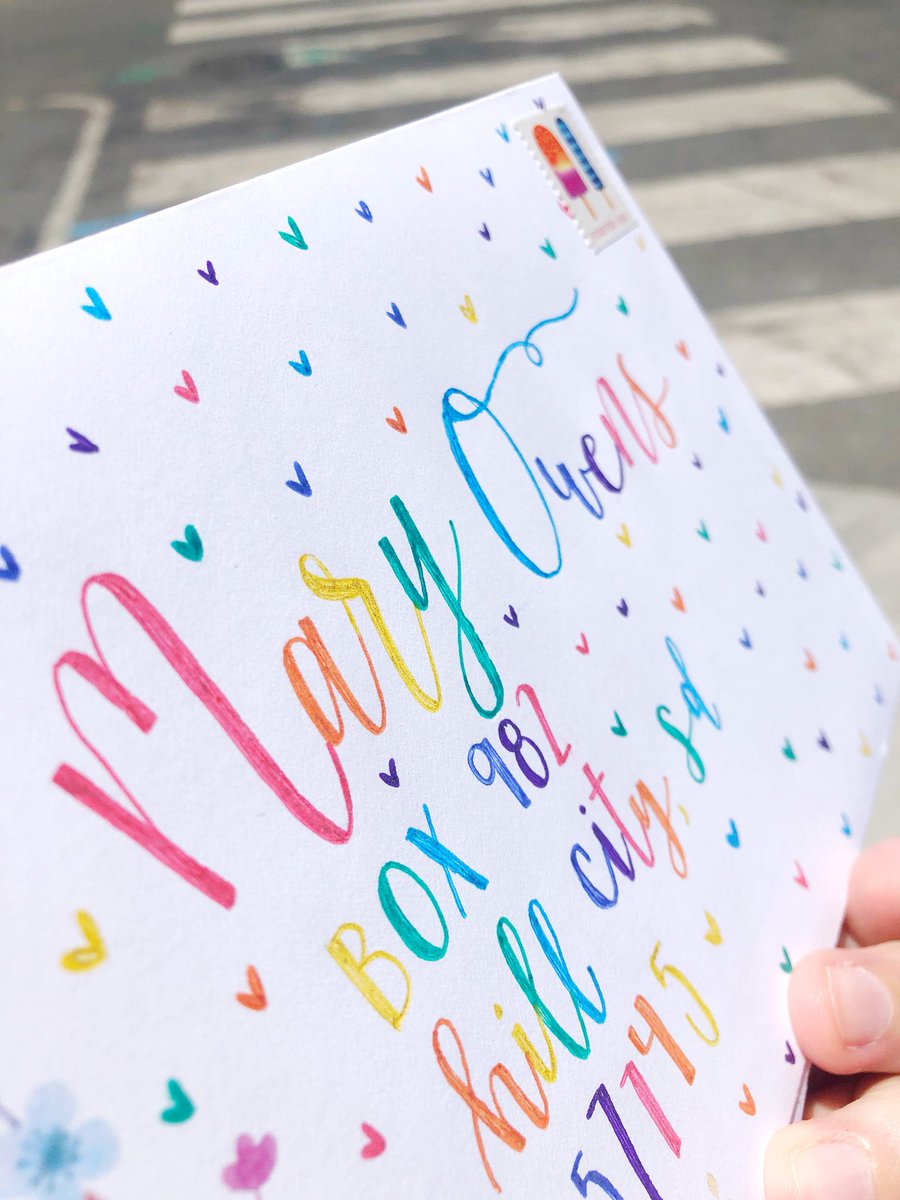 Mary Owens
BOX 982
hill city, sd
57745